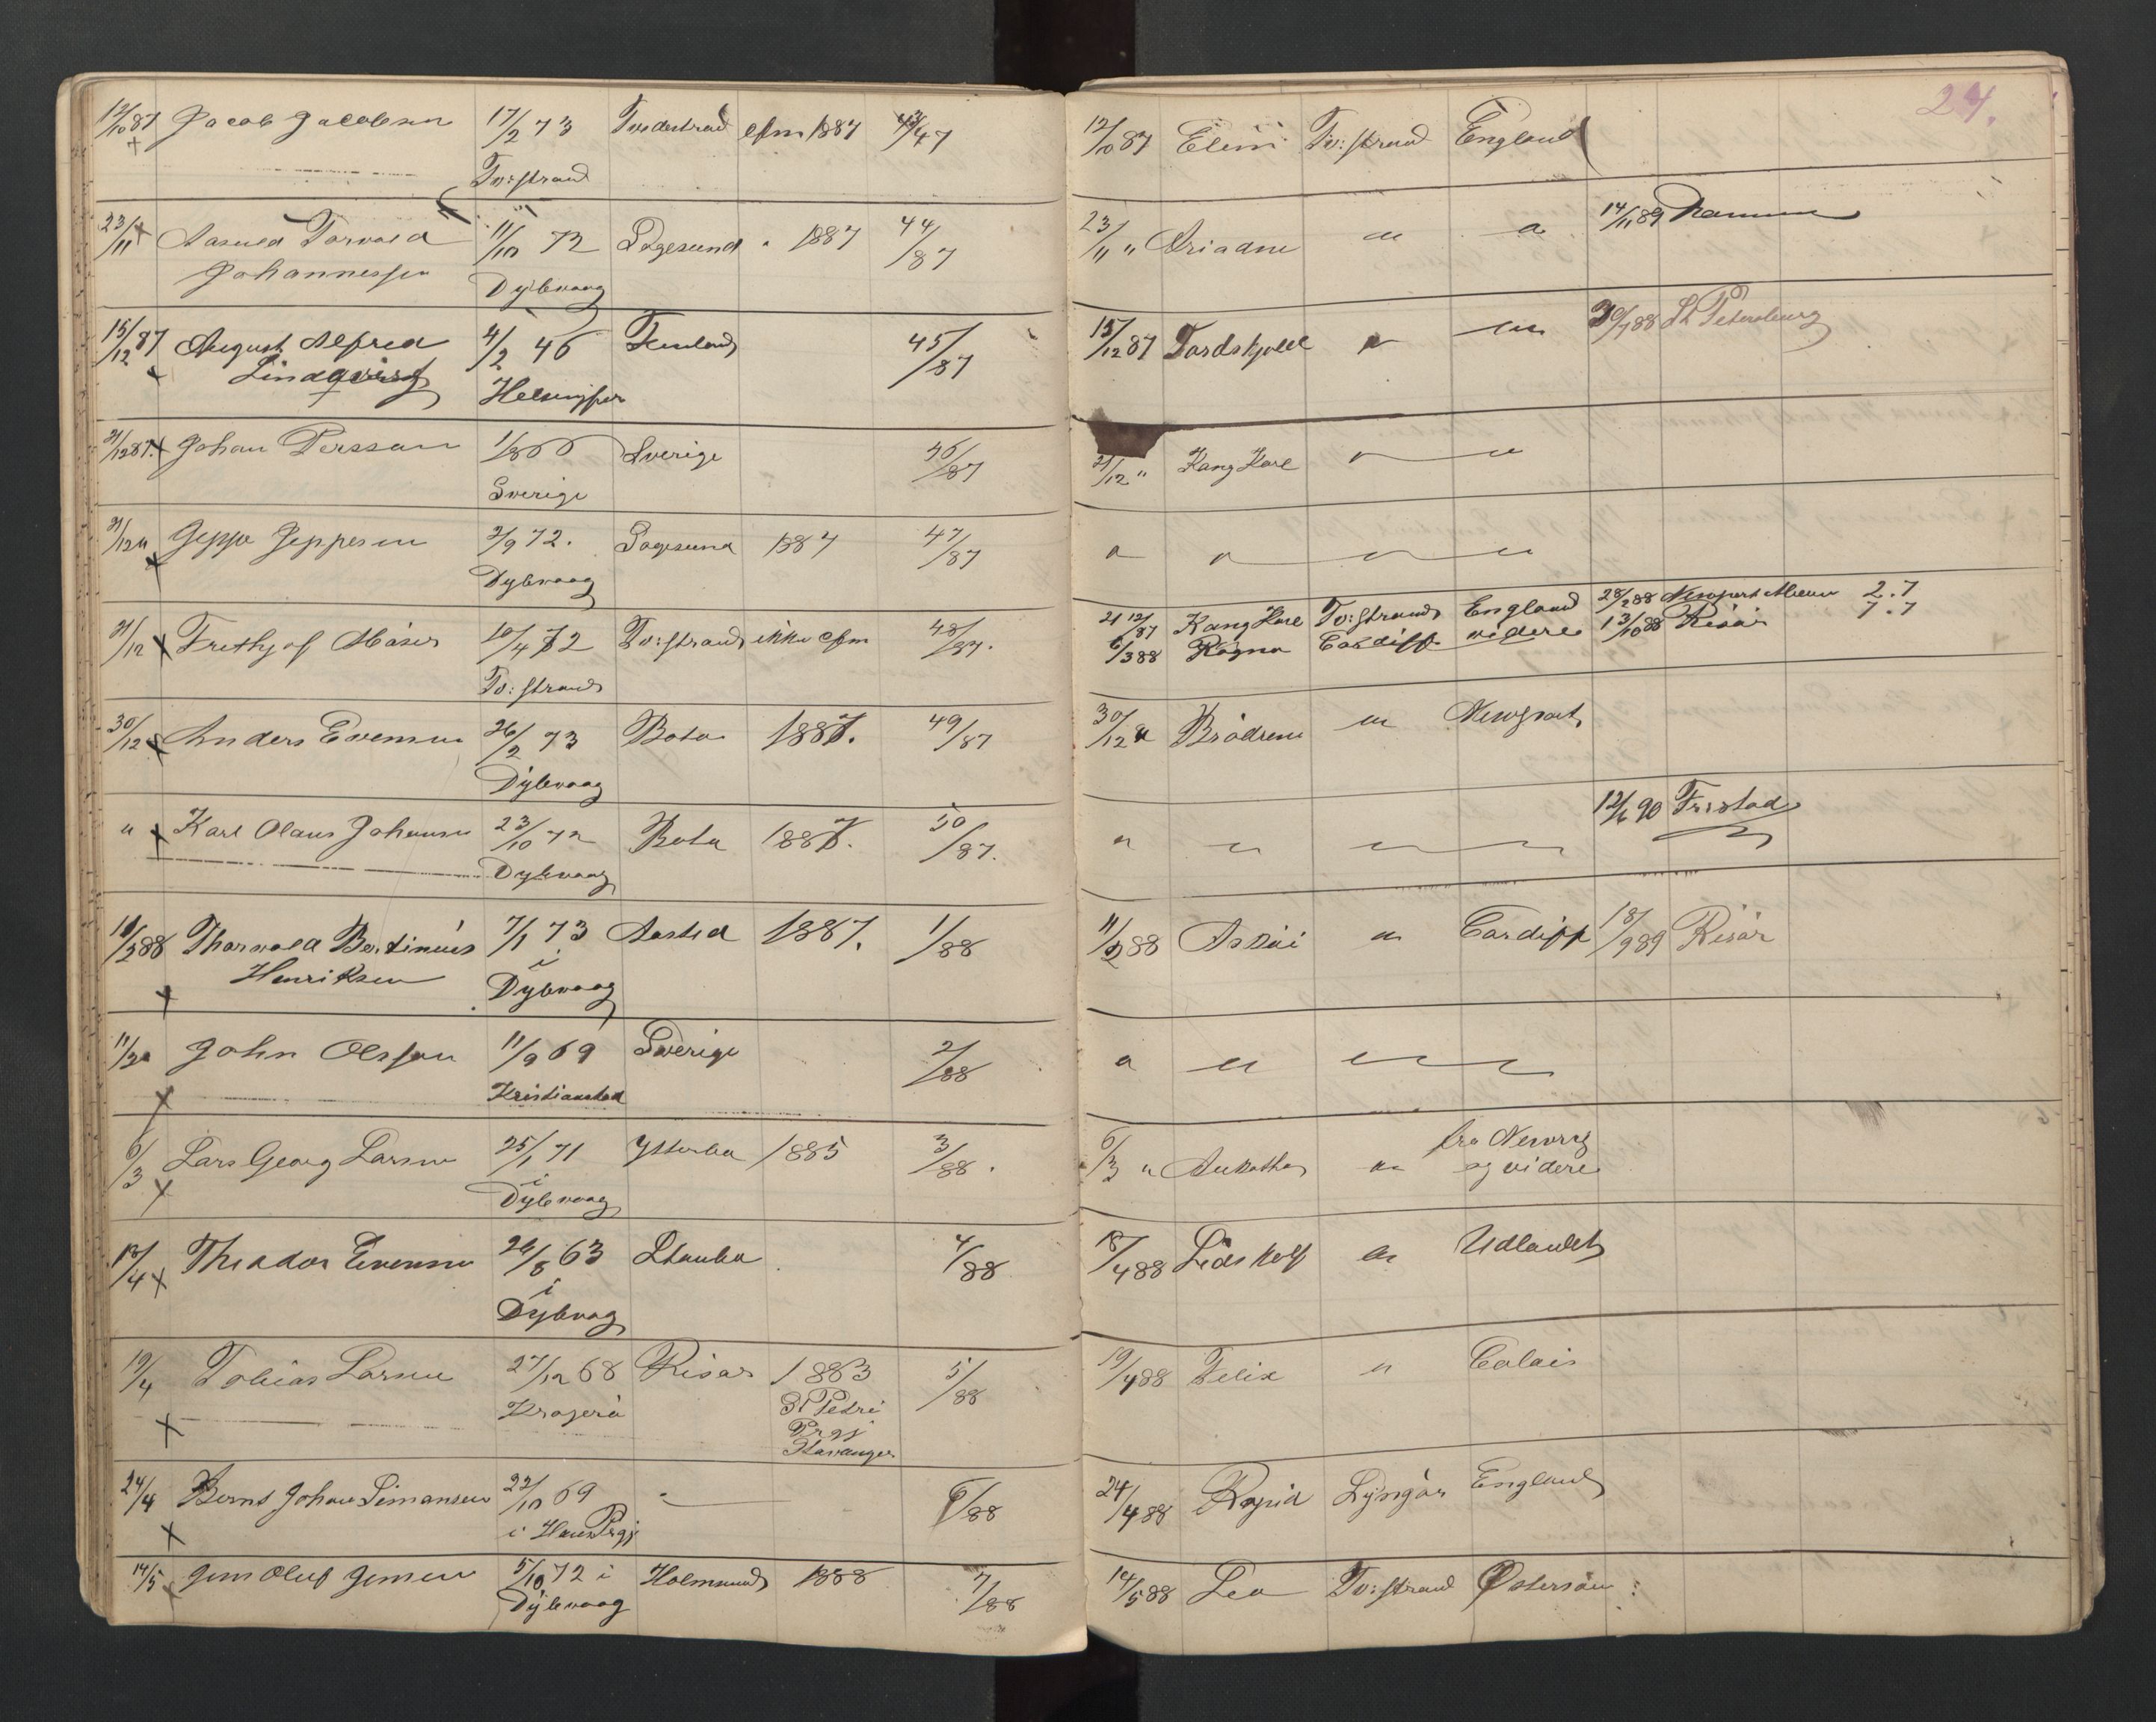 24.
12/10 87 Jacob Jacobsen 17/2 73 Tvedestrand cfm 1887 43/47 12/10 87 Elini Tv: strand England
Tv: strand
23/11 Aasuld Torvald 11/10 72 Sagesund " 1887 44/87 23/11 " Ariadne " " 14/11 89
Johannessen Dybvaag
15/12 87 August Alfred 4/2 46 Finland 45/87 15/12 87 Tordskjold " " 30/7 88 St Petersburg
Lindqvist Helsingfor
21/12 87 Johan Persson 1/8 66 Sverige 46/87 21/12 " Kong Karl " "
Sverige
21/12 " Jeppe Jeppesen 2/9 72. Sagesund 1887 47/87 " " " "
Dybvaag
21/12 Frithjof Maser 10/4 72 Tv: strand ikke cfm 48/87. 21 12/87 Kong Karl Tv: strand England 28/2 88 Newport 2.7
Tv: strand 6/3 88 Ragna Cardiff videre 13/10 88 Risør 7.7
30/12 Anders Evensen 26/2 73 Bota 1887. 49/87 30/12 " Brødrene " Newport
Dybvaag
" Karl Olaus Johansen 23/10 72 Bota 1887. 50/87. " " " " 12/6 90 Fr.stad
Dybvaag
10/2 88 Thorvald Bertinius 7/1 73 Aasted 1887. 1/88 11/2 88 Askøi " Cardiff 18/9 89 Risør
Henriksen i Dybvaag
11/2 " John Olsson 11/9 69 Sverige 2/88 " " " "
Kristianstad
6/3 Lars Georg Larsen 25/1 71 Ysterbø 1885 3/88. 6/3 " " fra
i Dybvaag og videre
18/4 Theodor Evensen 26/8 63 Stauba 4/88 18/4 88 Lidskjalf " Udlandet
i Dybvaag
19/4 Tobias Larsen 27/12 68 Risør 1863 5/88 19/4 88 Felix " Calais
Kragerø St Petri
Prgj
Stavanger
24/4 Bernt Johan Simonsen 22/10 69 " 6/88 24/4 88 Rapid Lyngør England
i Prgj
14/5 Jens Oluf Jensen 5/10 72 i Holmsund 1888 7/88 14/5 88 Leo Tv: strand Østersøen
Dybvaag